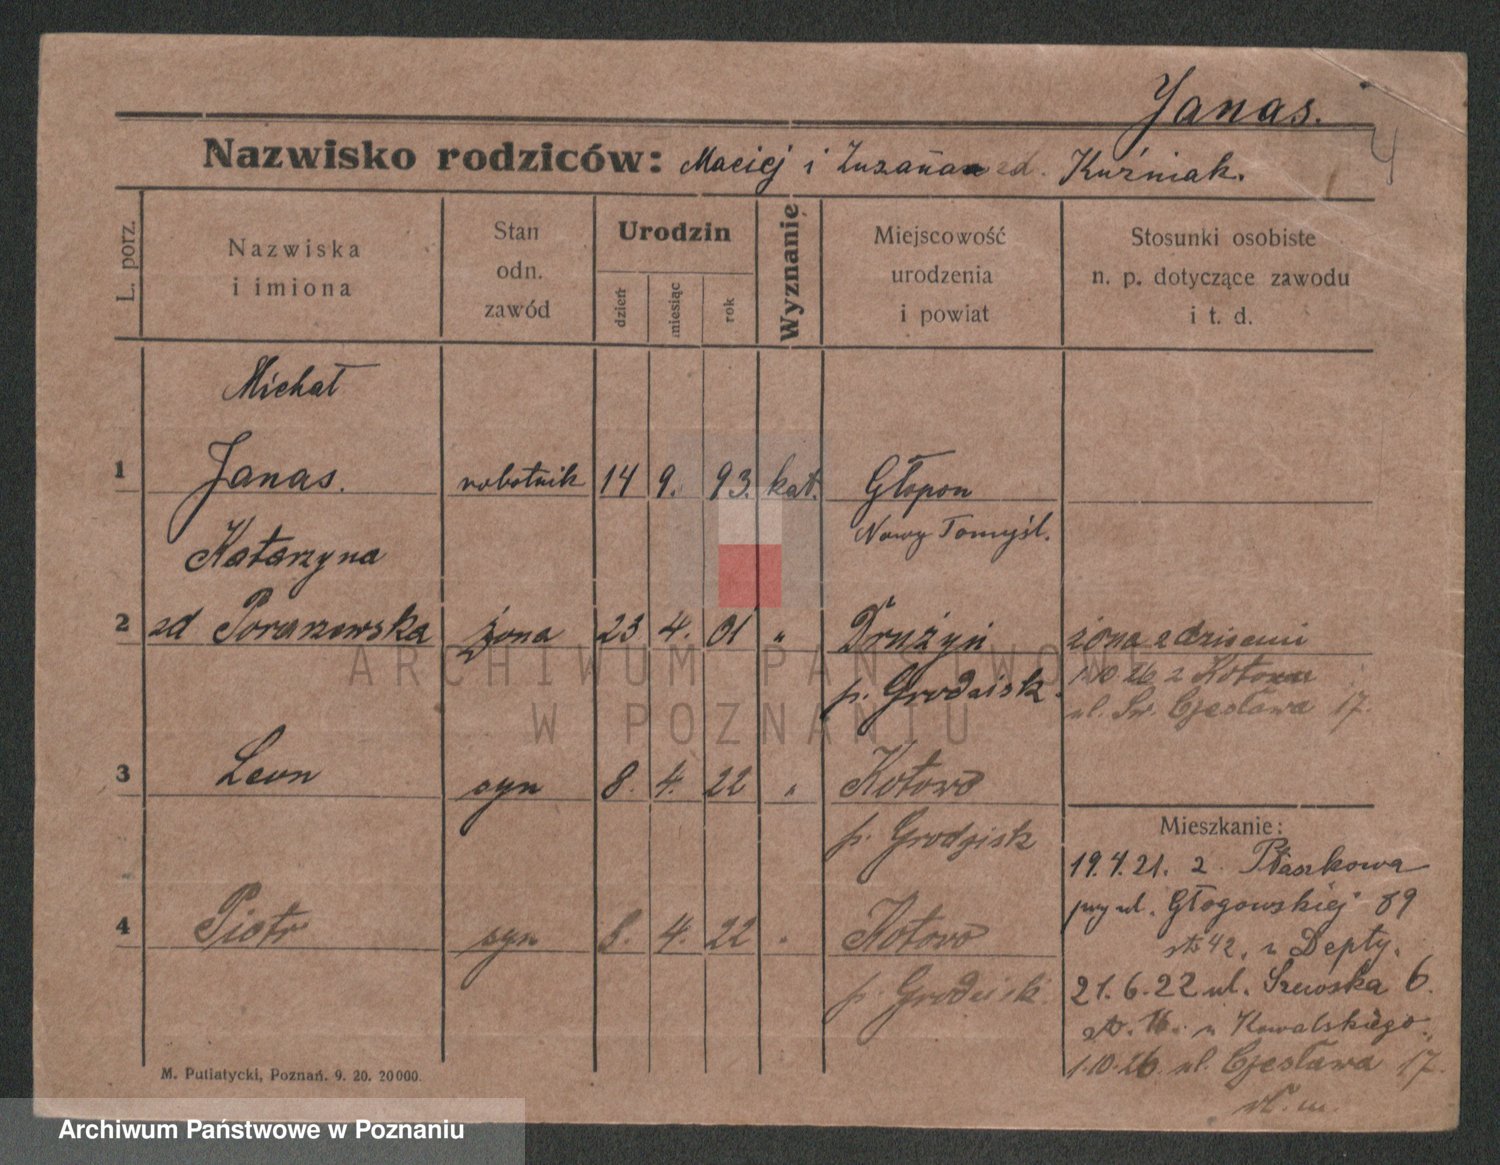 Janas.
4
Nazwisko rodziców: Maciej i Zuzanna zd. Kuźniak.
L. porz.
Nazwiska
i imiona
Stan
odn.
zawód
Urodzin
dzień
miesiąc
rok
Wyznanie
Miejscowość
urodzenia
i powiat
Stosunki osobiste
n. p. dotyczące zawodu
i t. d.
Michał
1 Janas. robotnik 14 9. 93. kat. Głopon
Nowy Tomyśl.
Katarzyna
2 zd Poraszewska żona 23 4. 01 " Drużyń żona z dziećmi
p. Grodzisk. 1.10.26 z Kotowa
ul. Św. Czesława 17.
3 Leon syn 8. 4. 22 " Kotowo
p. Grodzisk
Mieszkanie:
19.4.21. z Ptaszkowa
przy ul. Głogowskiej 89
str 42, u Depty.
4 Piotr syn 8. 4. 22 " Kotowo
p. Grodzisk
21.6.22 ul. Szewska 6.
u Kowalskiego.
1.10.26. ul. Czesława 17.
M. Putiatycki, Poznań. 9. 20. 20000.
ARCHIWUM PAŃSTWOWE
W POZNANIU
Archiwum Państwowe w Poznaniu